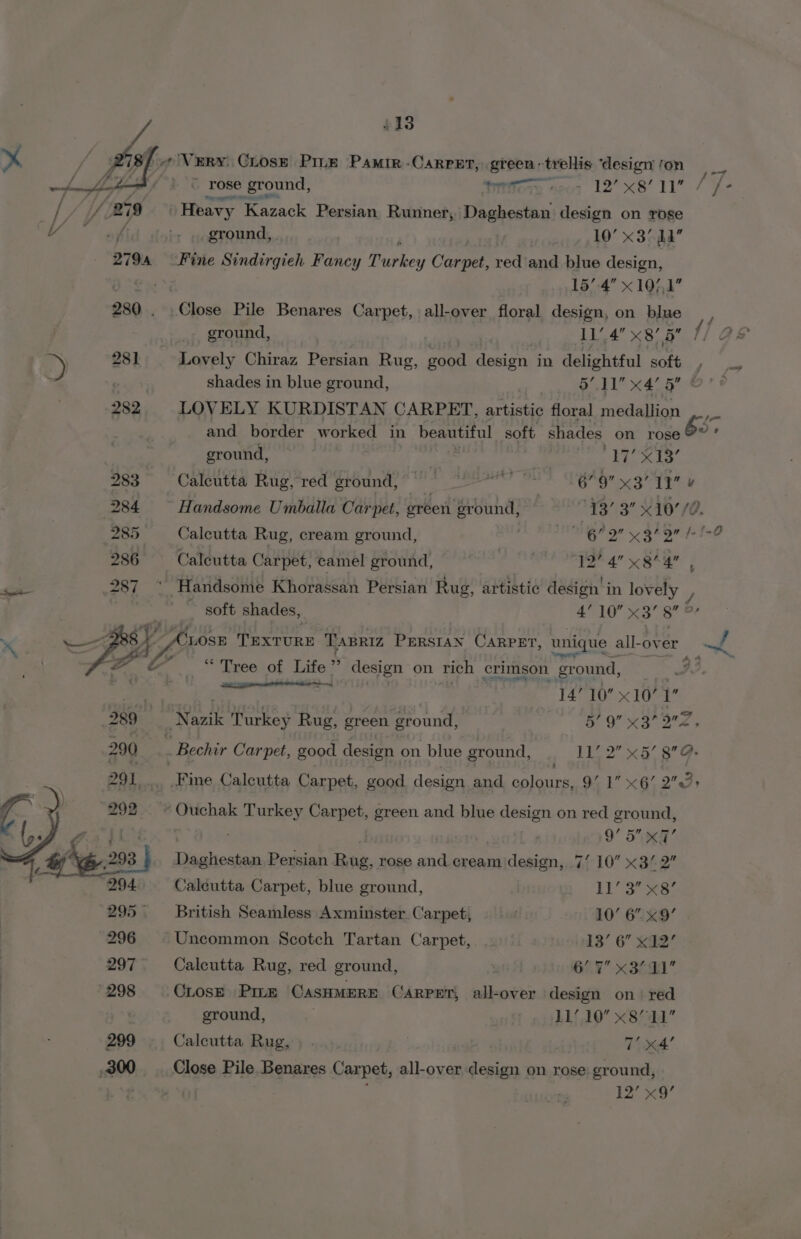 13
278 VERY CLOSE PILE PAMIR CARPET, green trellis design on
rose ground, 12' ×8' 11"
279 Heavy Kazack Persian Runner, Daghestan design on rose
ground, 10' ×3' 11"
279A Fine Sindirgieh Fancy Turkey Carpet, red and blue design,
15' 4" ×10' 1"
280 Close Pile Benares Carpet, all-over floral design, on blue
ground, 11' 4" ×8' 5"
281 Lovely Chiraz Persian Rug, good design in delightful soft
shades in blue ground, 5' 11" ×4' 5"
282 LOVELY KURDISTAN CARPET, artistic floral medallion
and border worked in beautiful soft shades on rose
ground, 17' ×13'
283 Calcutta Rug, red ground, 6' 9" ×3' 11"
284 Handsome Umballa Carpet, green ground, 13' 3" ×10'
285 Calcutta Rug, cream ground, 6' 2" ×3' 2"
286 Calcutta Carpet, camel ground, 12' 4" ×8' 4"
287 Handsome Khorassan Persian Rug, artistic design in lovely
soft shades, 4' 10" ×3' 8"
288 CLOSE TEXTURE TABRIZ PERSIAN CARPET, unique all-over
“Tree of Life” design on rich crimson ground,
14' 10" ×10' 1"
289 Nazik Turkey Rug, green ground, 5' 9" ×3' 2"
290 Bechir Carpet, good design on blue ground, 11' 2" ×5' 8"
291 Fine Calcutta Carpet, good design and colours, 9' 1" ×6' 2"
292 Ouchak Turkey Carpet, green and blue design on red ground,
9' 5" ×7'
293 Daghestan Persian Rug, rose and cream design, 7' 10" ×3' 2"
294 Calcutta Carpet, blue ground, 11' 3" ×8'
295 British Seamless Axminster Carpet, 10' 6" ×9'
296 Uncommon Scotch Tartan Carpet, 13' 6" ×12'
297 Calcutta Rug, red ground, 6' 7" ×3' 11"
298 CLOSE PILE CASHMERE CARPET, all-over design on red
ground, 11' 10" ×8' 11"
299 Calcutta Rug, 7' ×4'
300 Close Pile Benares Carpet, all-over design on rose ground,
12' ×9'